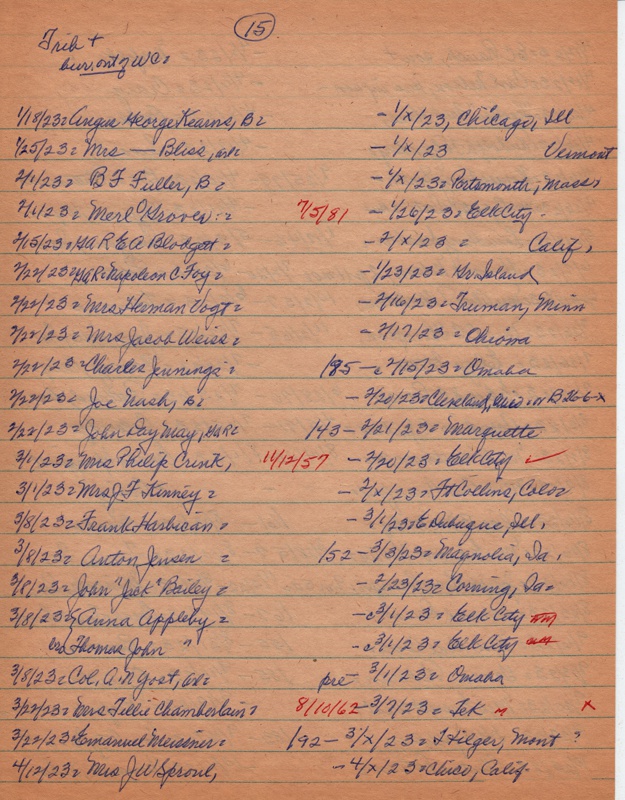 15
Trib +
bur. out of WC=
1/18/23= Angus George Kearns, B= - 1/x/23, Chicago, Ill
1/25/23= Mrs — Bliss, - 1/x/23 Vermont
2/1/23= B F Fuller, B= - 1/x/23= Portsmonth, Mass=
2/1/23= Merl Grover = 7/5/81 - 1/26/23= Elk City -
2/15/23= GAR E A Blodgett = - 2/x/23 = Calif,
2/22/23= GAR= Napoleon C Foy = - 1/23/23= Gr. Island
2/22/23= Mrs Herman Vogt = - 2/16/23= Truman, Minn
2/22/23= Mrs Jacob Weiss = - 2/17/23= Ohiowa
2/22/23= Charles Jennings = 185 - c 2/15/23= Omaha
2/22/23= Joe Nash, B= - 2/20/23= Cleveland, Ohio = or B 26-6-x
2/22/23= John Day May, GAR= 143 - 2/21/23= Marquette
3/1/23= Mrs Philip Crink, 11/12/57 - 2/20/23= Elk City ✓
3/1/23= Mrs J F Kinney = - 2/x/23= Ft Collins, Colo=
3/8/23= Frank Harbican = - 3/1/23= E Dubuque, Ill,
3/8/23= Anton Jensen = 152 - 3/3/23= Magnolia, Ia.
3/8/23= John "Jack" Bailey = - 2/23/23= Corning, Ia=
3/8/23= Anna Appleby = - c 3/1/23= Elk City
Thomas John " - c 3/1/23= Elk City
3/8/23= Col. A. N Yost, pre 3/1/23= Omaha
3/22/23= Mrs Tillie Chamberlain= 8/10/62 - 3/7/23= Tek x
3/22/23= Emanuel Meissner= 192 - 3/x/23= Hilger, Mont ?
4/12/23= Mrs J W Sproul, - 4/x/23= Chico, Calif-